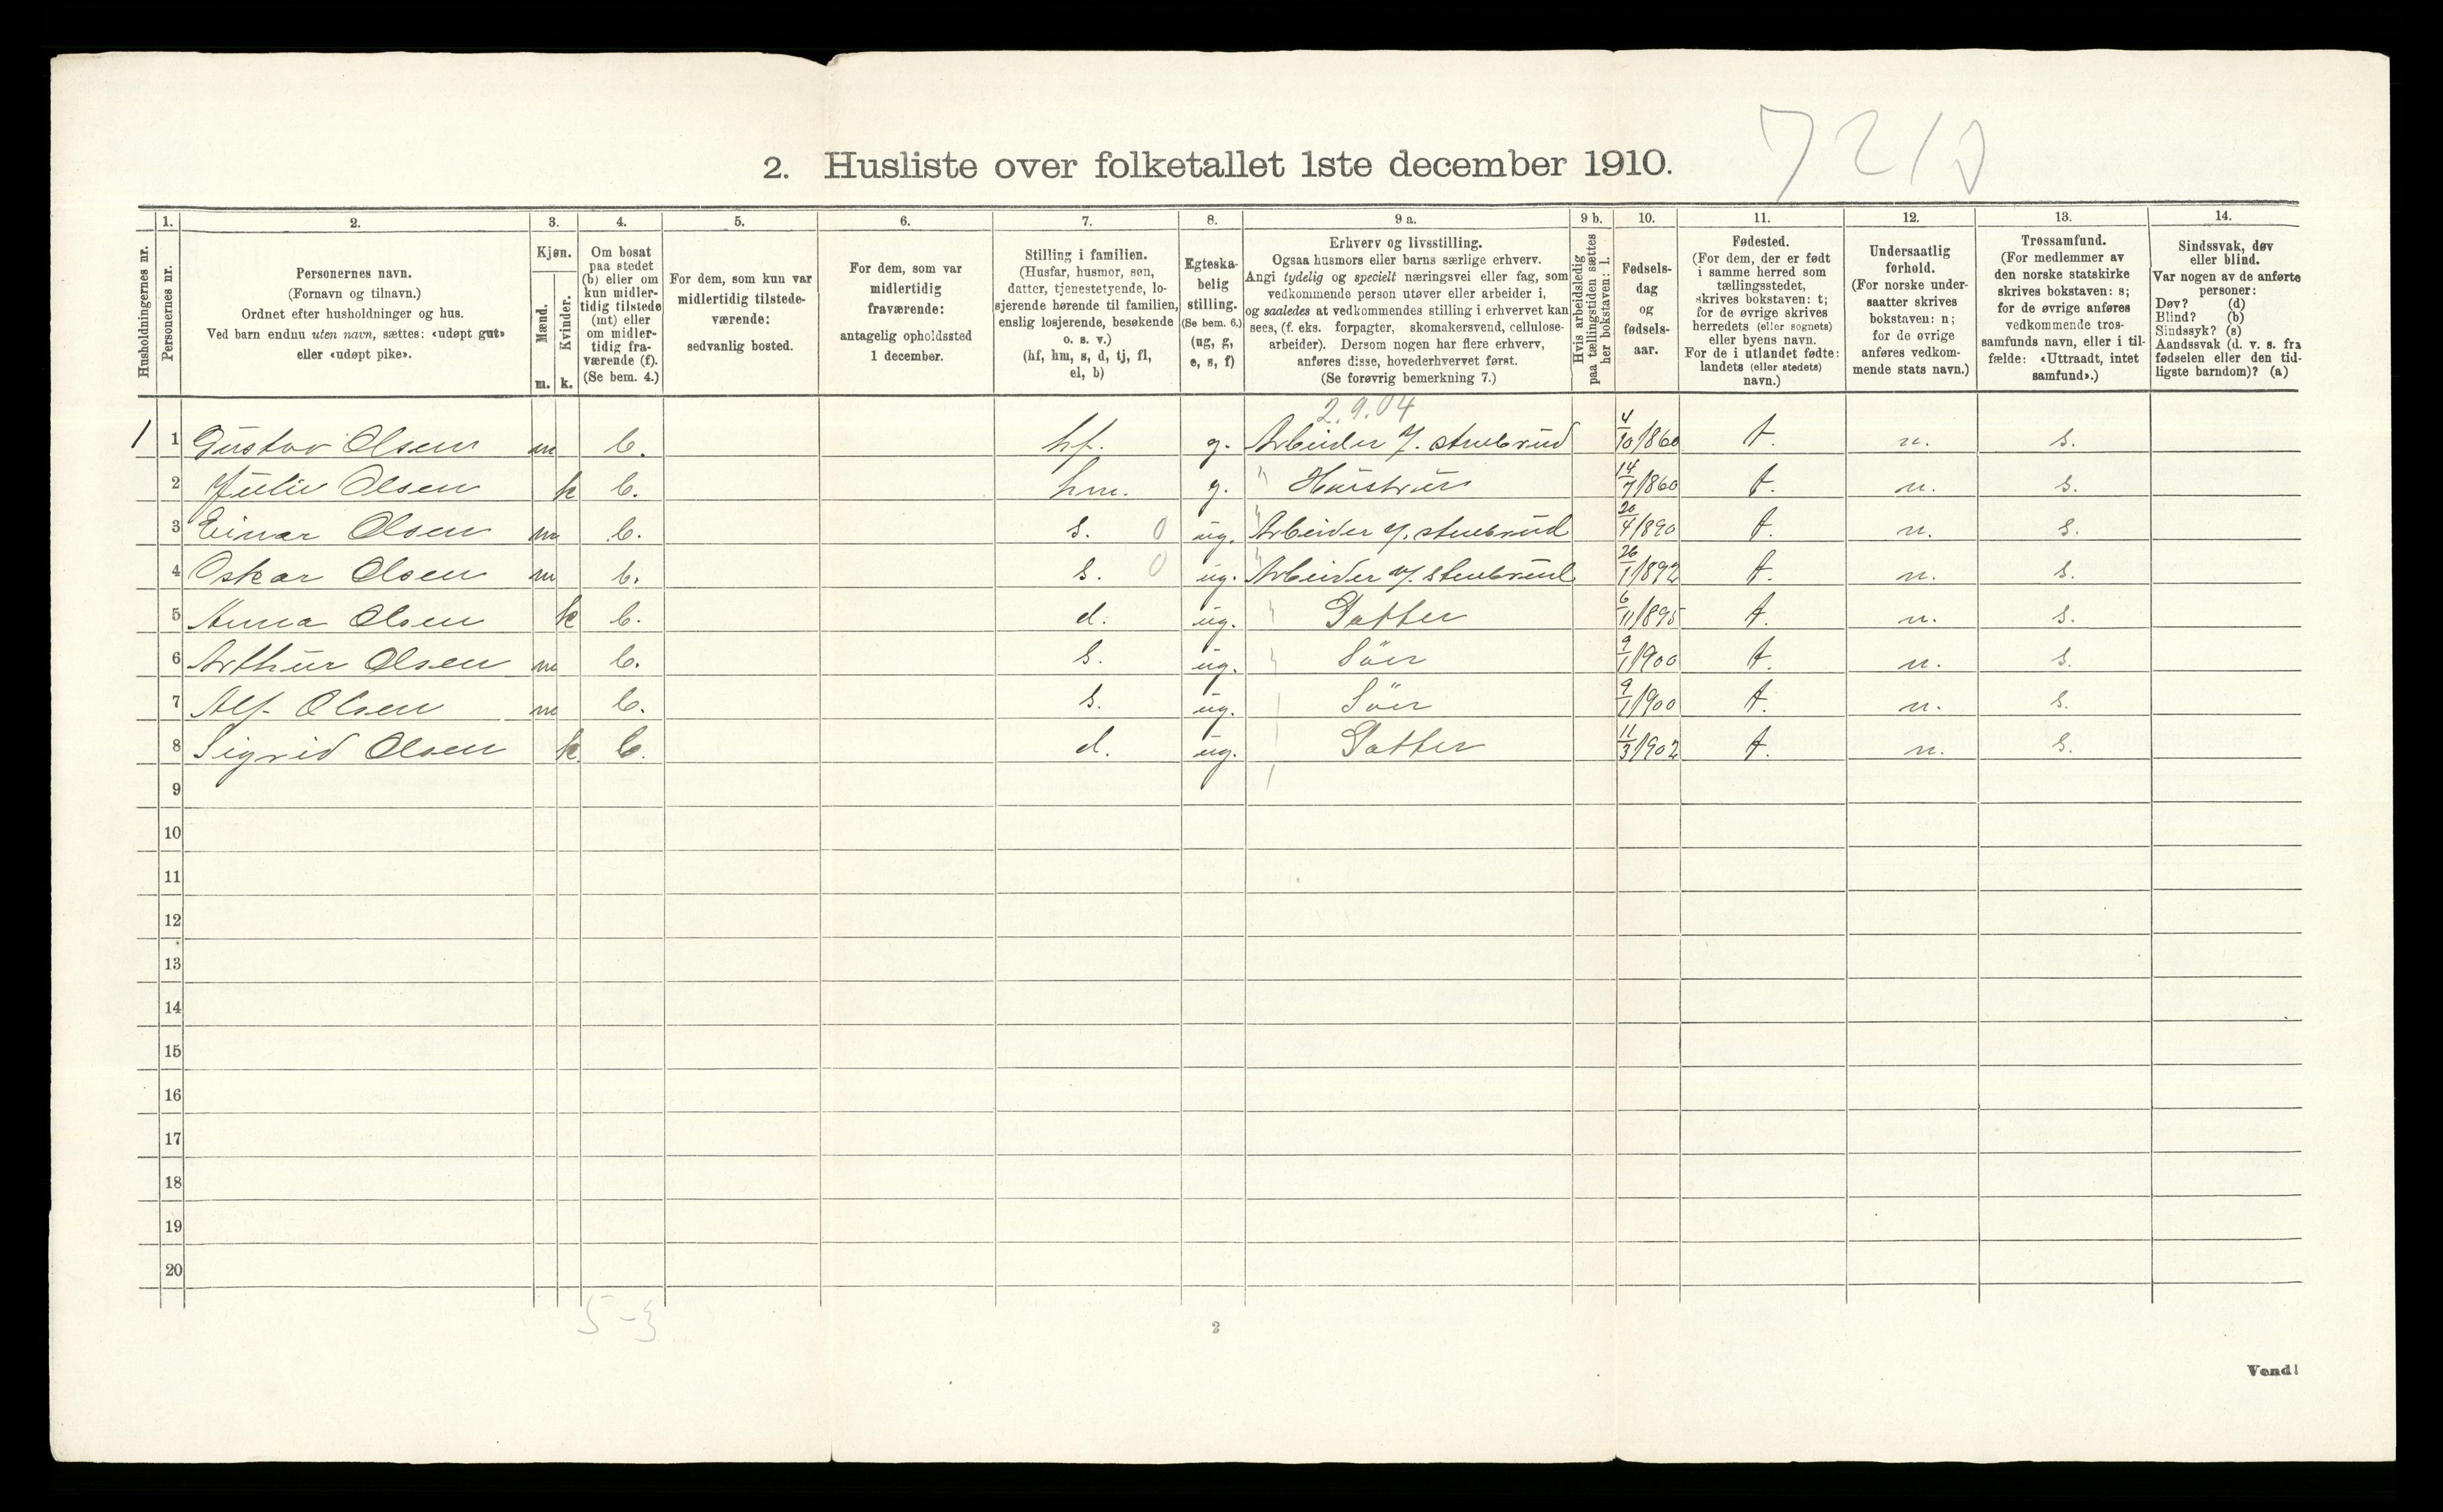 7210
2. Husliste over folketallet 1ste december 1910.
Husholdningernes nr.
1.
Personernes nr.
2.
Personernes navn.
(Fornavn og tilnavn.)
Ordnet efter husholdninger og hus.
Ved barn endnu uten navn, sættes: «udøpt gut»
eller «udøpt pike».
3.
Kjøn.
Mænd.
Kvinder.
m. k.
4.
Om bosat
paa stedet
(b) eller om
kun midler-
tidig tilstede
(mt) eller
om midler-
tidig fra-
værende (f).
(Se bem. 4.)
5.
For dem, som kun var
midlertidig tilstede-
værende:
sedvanlig bosted.
6.
For dem, som var
midlertidig
fraværende:
antagelig opholdssted
1 december.
7.
Stilling i familien.
(Husfar, husmor, søn,
datter, tjenestetyende, lo-
sjerende hørende til familien,
enslig losjerende, besøkende
o. s. v.)
(hf, hm, s, d, tj, fl,
el, b)
8.
Egteska-
belig
stilling.
(Se bem. 6.)
(ug, g,
e, s, f)
9 a.
Erhverv og livsstilling.
Ogsaa husmors eller barns særlige erhverv.
Angi tydelig og specielt næringsvei eller fag, som
vedkommende person utøver eller arbeider i,
og saaledes at vedkommendes stilling i erhvervet kan
sees, (f. eks. forpagter, skomakersvend, cellulose-
arbeider). Dersom nogen har flere erhverv,
anføres disse, hovederhvervet først.
(Se forøvrig bemerkning 7.)
9 b.
Hvis arbeidsledig
paa tællingstiden sættes
her bokstaven: l.
10.
Fødsels-
dag
og
fødsels-
aar.
11.
Fødested.
(For dem, der er født
i samme herred som
tællingsstedet,
skrives bokstaven: t;
for de øvrige skrives
herredets (eller sognets)
eller byens navn.
For de i utlandet fødte:
landets (eller stedets)
navn.)
12.
Undersaatlig
forhold.
(For norske under-
saatter skrives
bokstaven: n;
for de øvrige
anføres vedkom-
mende stats navn.)
13.
Trossamfund.
(For medlemmer av
den norske statskirke
skrives bokstaven: s;
for de øvrige anføres
vedkommende tros-
samfunds navn, eller i til-
fælde: «Uttraadt, intet
samfund».)
14.
Sindssvak, døv
eller blind.
Var nogen av de anførte
personer:
Døv? (d)
Blind? (b)
Sindssyk? (s)
Aandssvak (d. v. s. fra
fødselen eller den tid-
ligste barndom)? (a)
2.9.04
1 1 Gustav Olsen m b. hf. g. Arbeider i/. stenbrud 4/10 1860 t. n. s.
2 Julie Olsen k b. hm. g. " Hustru 14/7 1860 t. n. s.
3 Einar Olsen m b. s. 0 ug. Arbeider i/. stenbrud 20/4 1890 t. n. s.
4 Oskar Olsen m b. s. 0 ug. Arbeider i/. stenbrud 26/1 1892 t. n. s.
5 Anna Olsen k b. d. ug. Datter 6/11 1895 t. n. s.
6 Arthur Olsen m b. s. ug. Sön 9/1 1900 t. n. s.
7 Alf Olsen m b. s. ug. Sön 9/1 1900 t. n. s.
8 Sigrid Olsen k b. d. ug. Datter 11/3 1902 t. n. s.
9
10
11
12
13
14
15
16
17
18
19
20
5-3
2
Vend!